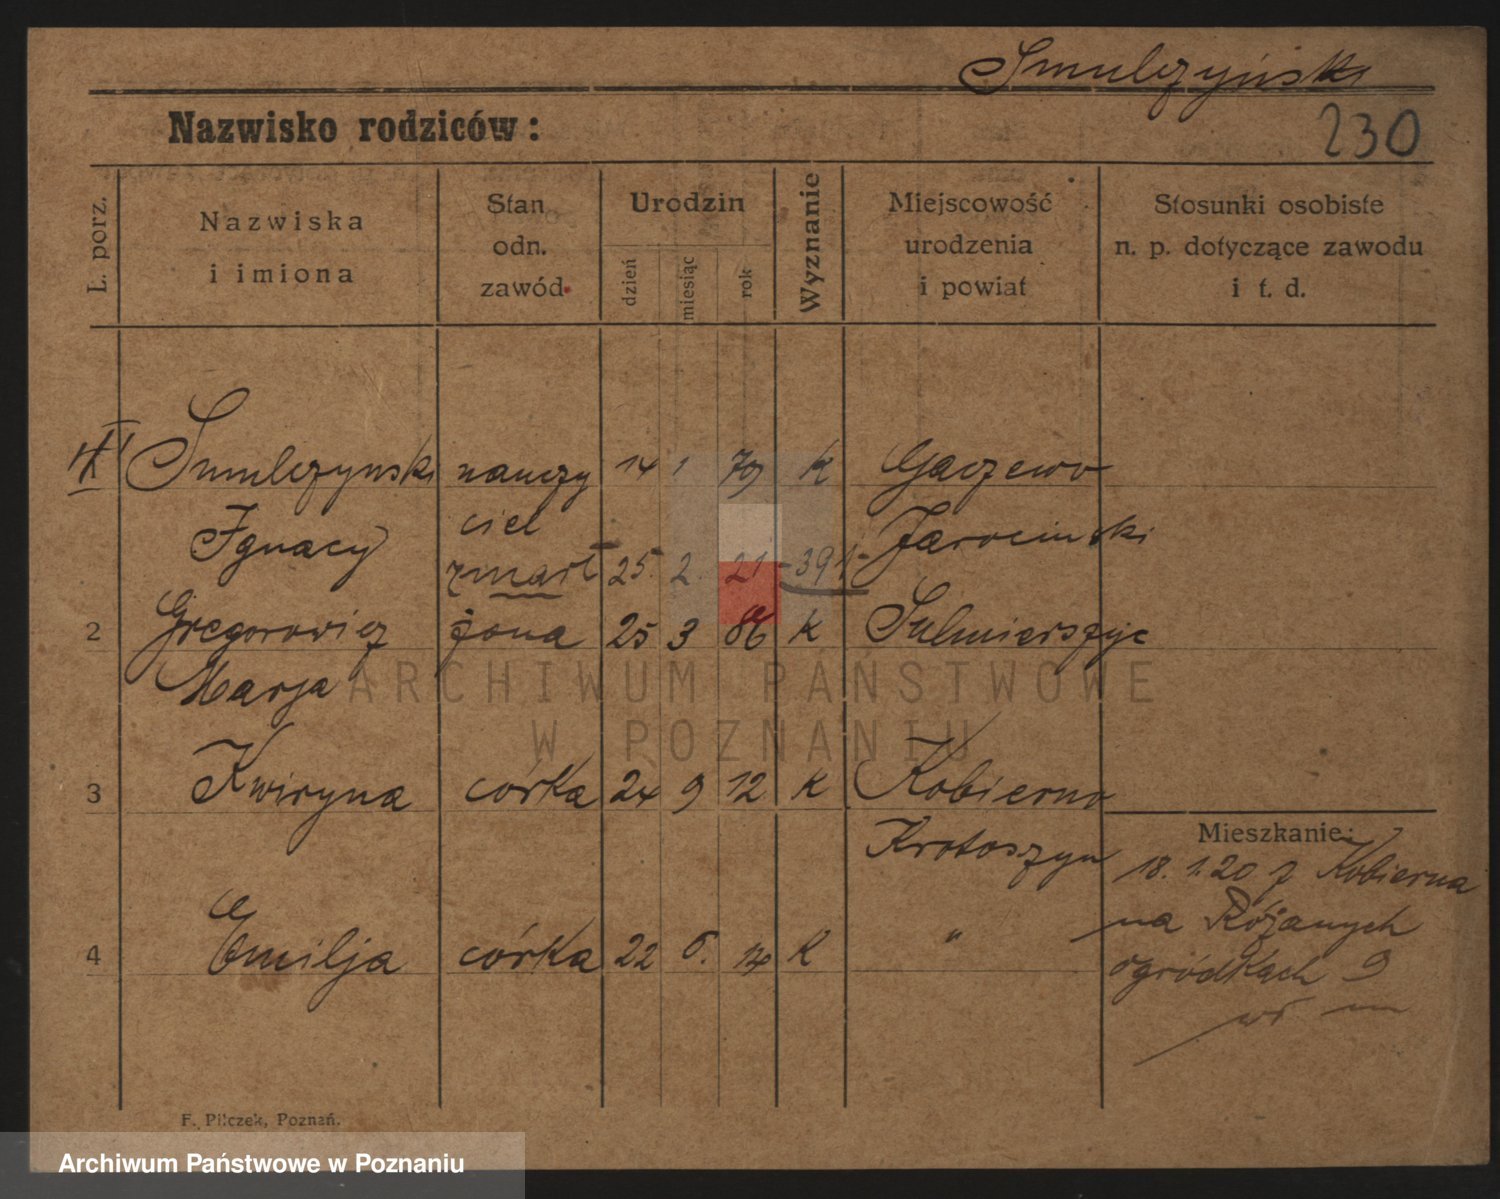 Smulczyński
Nazwisko rodziców:
230
L. porz.
Nazwiska
i imiona
Stan
odn.
zawód
Urodzin
dzień
miesiąc
rok
Wyznanie
Miejscowość
urodzenia
i powiat
Stosunki osobiste
n. p. dotyczące zawodu
i t. d.
Smulczynski nauczy 14 1 79 K Gaczewo
Ignacy ciel Jarocinski
zmarł 25. 2. 21 -391-
2 Gregorowicz żona 25 3 86 K Sulmierszyce
Marja
3 Kwiryna córka 24 9 12 K Kobierno
Krotoszyn
Mieszkanie:
18. 1. 20 z Kobierna
na Różanych
ogródkach 9
4 Emilja córka 22 6. 14 K "
F. Pilczek, Poznań.
ARCHIWUM PAŃSTWOWE
W POZNANIU
Archiwum Państwowe w Poznaniu